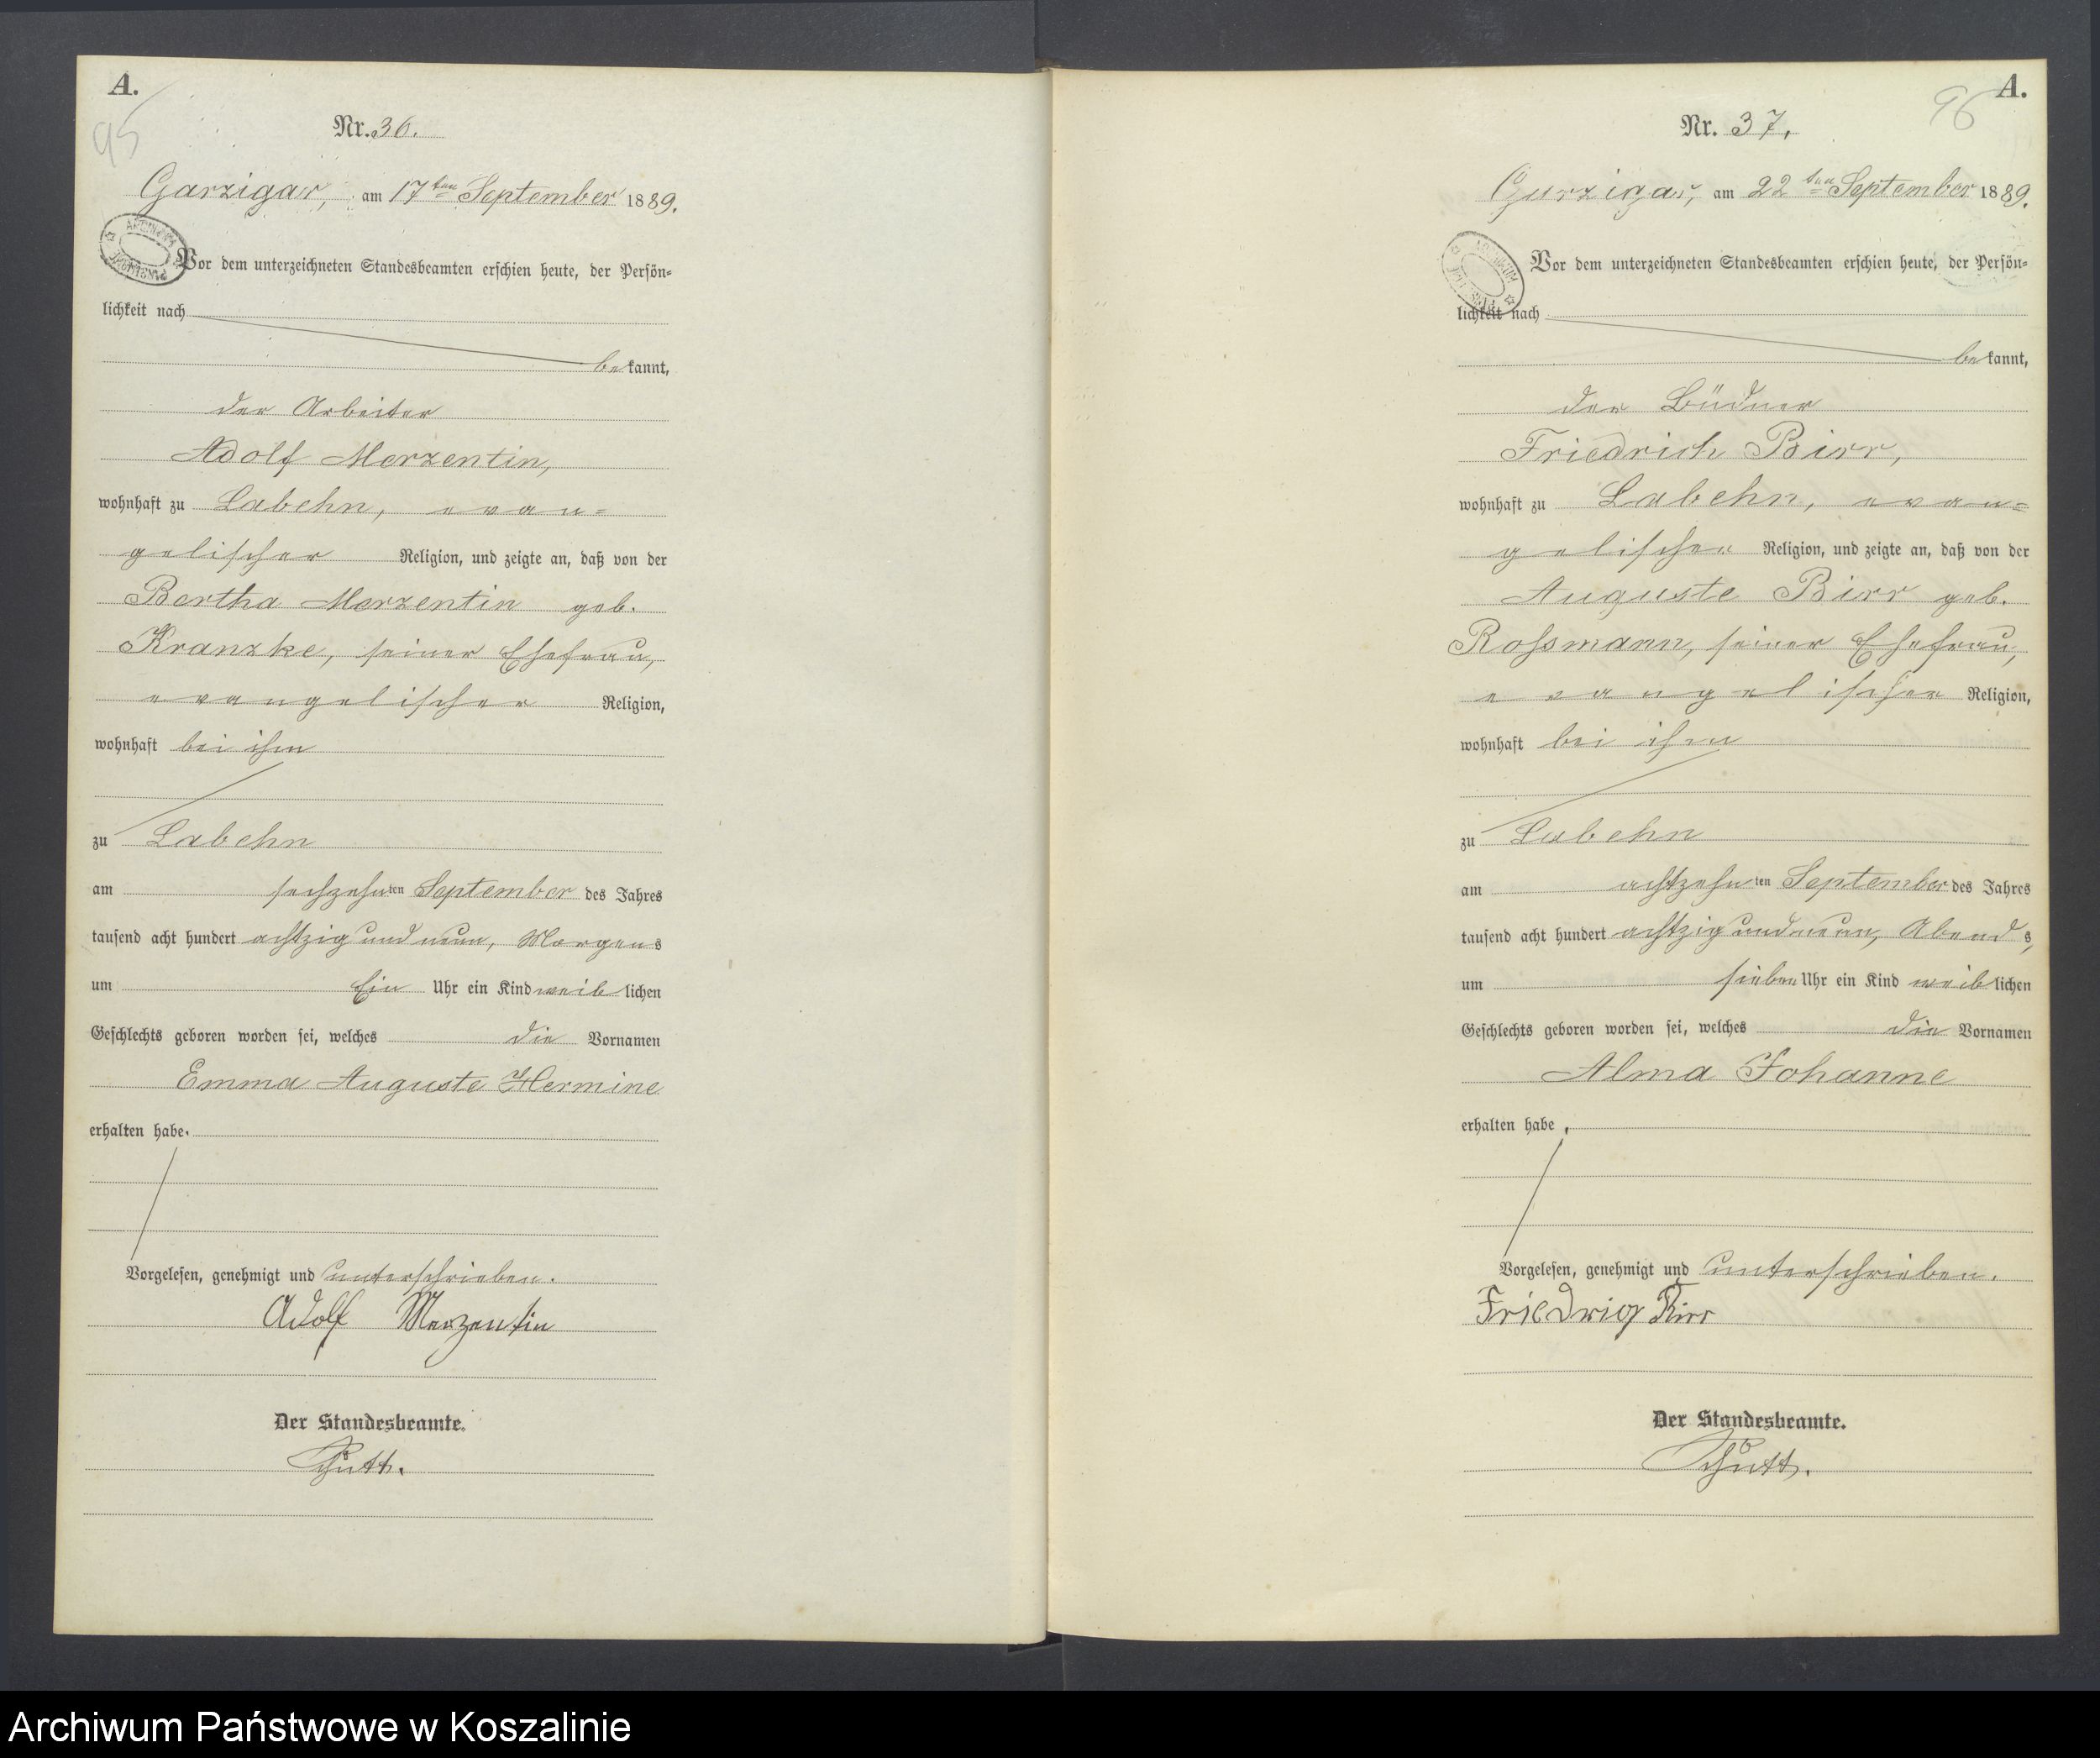 A.
95
Nr. 36.
Garzigar, am 17ten September 1889.
ARCHIWUM PAŃSTWOWE
Vor dem unterzeichneten Standesbeamten erschien heute, der Persön=
lichkeit nach
bekannt,
der Arbeiter
Adolf Merzentin,
wohnhaft zu Labehn, evan=
gelischer Religion, und zeigte an, daß von der
Bertha Merzentin geb.
Kranzke, seiner Ehefrau,
evangelischer Religion,
wohnhaft bei ihm
zu Labehn
am sechzehnten September des Jahres
tausend acht hundert achtzig und neun, Morgens
um Ein Uhr ein Kind weiblichen
Geschlechts geboren worden sei, welches die Vornamen
Emma Auguste Hermine
erhalten habe.
Vorgelesen, genehmigt und unterschrieben.
Adolf Merzentin
Der Standesbeamte.
Schütt.
A.
96
Nr. 37.
Garzigar, am 22ten September 1889.
Vor dem unterzeichneten Standesbeamten erschien heute, der Persön=
lichkeit nach
bekannt,
der Büdner
Friedrich Birr,
wohnhaft zu Labehn, evan=
gelischer Religion, und zeigte an, daß von der
Auguste Birr geb.
Roßmann, seiner Ehefrau,
evangelischer Religion,
wohnhaft bei ihm
zu Labehn
am achtzehnten September des Jahres
tausend acht hundert achtzig und neun, Abends,
um sieben Uhr ein Kind weiblichen
Geschlechts geboren worden sei, welches die Vornamen
Alma Johanne
erhalten habe.
Vorgelesen, genehmigt und unterschrieben.
Friedrich Birr
Der Standesbeamte.
Schütt.
Archiwum Państwowe w Koszalinie